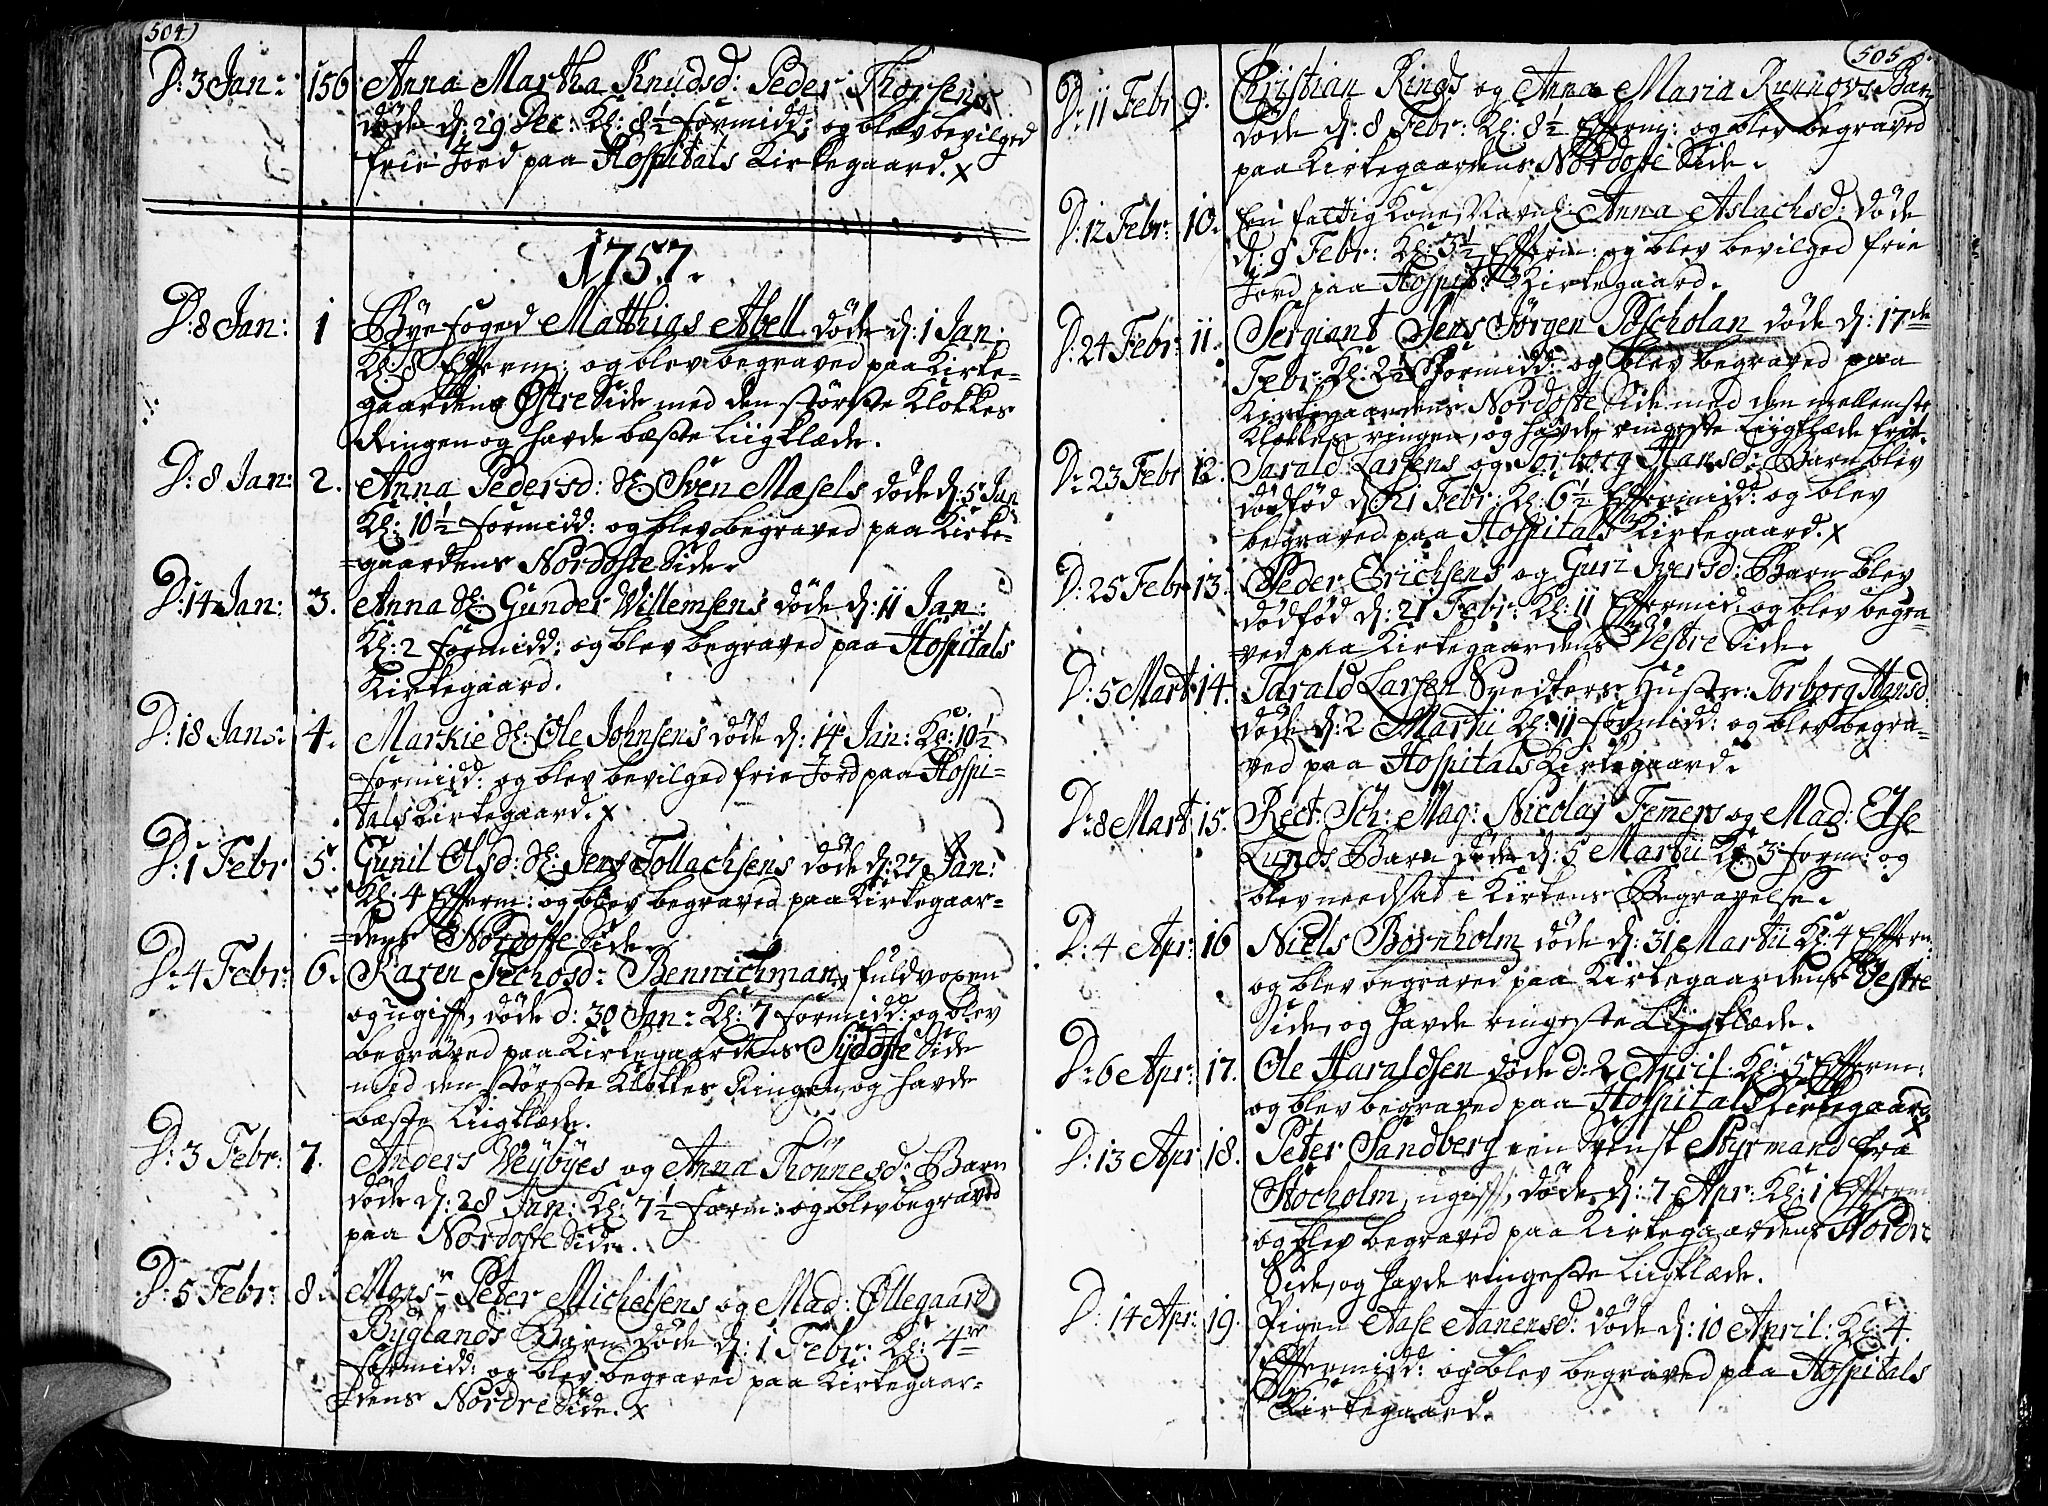 504)
D: 3 Jan: 156. Anna Martha Knudsd: Peder Thorsens
døde d: 29 Dec: Kl: 8½ formidd: og blev bevilged
frie Jord paa Hospitals Kirkegaard. x
1757.
D: 8 Jan: 1 Bÿefoged Matthias Abell døde d: 1 Jan:
Kl: 8 Efterm: og blev begraved paa Kirke-
gaardens Østre Side med den største Klokkes
Ringen og havde bæste Liigklæde.
D: 8 Jan: 2. Anna Pedersd: Sven Mæsels døde d: 5 Jan
Kl: 10½ formidd: og blev begraved paa Kirke-
=gaardens Nordoste Side.
D: 14 Jan: 3. Anna Gunder Willemsens døde d: 11 Jan:
Kl: 2 formidd: og blev begraved paa Hospitals
Kirkegaard.
D: 18 Jan: 4. Markie Ole Johnsens døde d: 14 Jan: Kl: 10½
formidd: og blev bevilged frie Jord paa Hospi-
tals Kirkegaard. x
D: 1 Febr 5. Gunil Olsd: Jens Tollachsens døde d: 27 Jan:
Kl: 4 Efterm: og blev begraved paa Kirkegaar-
=dens Nordoste Side
D: 4 Febr: 6. Karen Bennichman, fuldvoxen
og ugift, døde d: 30 Jan: Kl: 7 formidd: og blev
begraved paa Kirkegaardens Sÿdoste Side
med den største Klokkes Ringen, og havde
bæste Liigklæde.
D: 3 Febr: 7. Anders Weÿbÿes og Anna Thønnesd: Barn
døde d: 28 Jan: Kl: 7½ form: og blev begraved
paa Nordoste Side.
D: 5 Febr: 8. Monsr Peter Michelsens og Mad: Øllegaard
Bÿglands Barn døde d: 1 Febr: Kl: 4
formidd: og blev begraved paa Kirkegaar-
dens Nordre Side. x
505
D: 11 Febr 9. Christian Rings og Anna Maria Barn
døde d: 8 Febr: Kl: 8½ Efterm: og blev begraved
paa Kirkegaardens Nordoste Side.
D: 12 Febr: 10. En fattig Kone Navnl: Anna Aslachsd: døde
d: 9 Febr: Kl: 3½ Efterm: og blev bevilged frie
Jord paa Hospit: Kirkegaard.
D: 24 Febr: 11. Sergiant Jens Jørgen Poscholan døde d: 17de
Febr: Kl: 2½ formidd: og blev begraved paa
Kirkegaardens Nordoste Side med den mellemste
Klokkes ringen, og havde ringeste Liigklæde frit.
D: 23 Febr 12. Tarald Larsens og Torborg Hansd: Barn blev
dødfød d: 21 Febr: Kl: 6½ Eftermidd: og blev
begraved paa Hospitals Kirkegaard. x
D: 25 Febr 13. Peder Erichsens og Guri Iversd: Barn blev
dødfød d: 21 Febr: Kl: 11 Eftermid: og blev begra-
=ved paa Kirkegaardens Vestre Side.
D: 5 Mart 14. Tarald Larsen Hustr: Torborg Hansd:
døde d: 2 Martii Kl: 11 formidd: og blev begra-
ved paa Hospitals Kirkegaard.
D: 8 Mart 15. Rect: Sch: Mag: Nicolaj Femmers og Mad: Else
Lunds Barn døde d: 5 Martii Kl: 3 form: og
blev needsat i Kirkens Begravelse.
D: 4 Apr: 16 Niels Bornholm døde d: 31 Martii Kl: 4 Efterm:
og blev begraved paa Kirkegaardens Vestre
Side, og havde ringeste Liigklæde.
D: 6 Apr: 17. Ole Haraldsen døde d: 2 April: Kl: 5 Efterm:
og blev begraved paa Hospitals Kirkegaard x
D: 13 Apr 18. Peter Sandberg een Svensk Stÿrmand fra
Stocholm, ugift, døde d: 7 Apr: Kl: 1 Efterm
og blev begraved paa Kirkegaardens Nordre
Side, og havde ringeste Liigklæde.
D: 14 Apr: 19. Pigen Aase Aanensd: døde d: 10 April: Kl: 4.
Eftermidd: og blev begraved paa Hospitals
Kirkegaard.